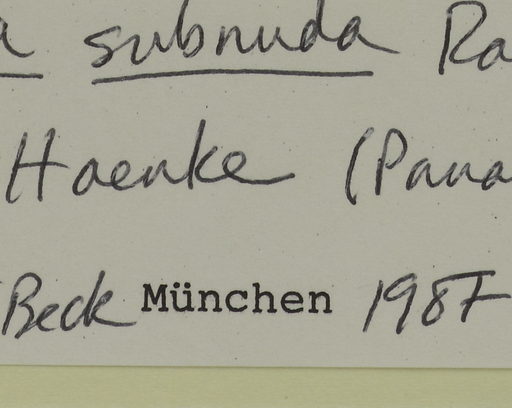 a subnuda Ra
Haenke (Pana
Beck München 1987